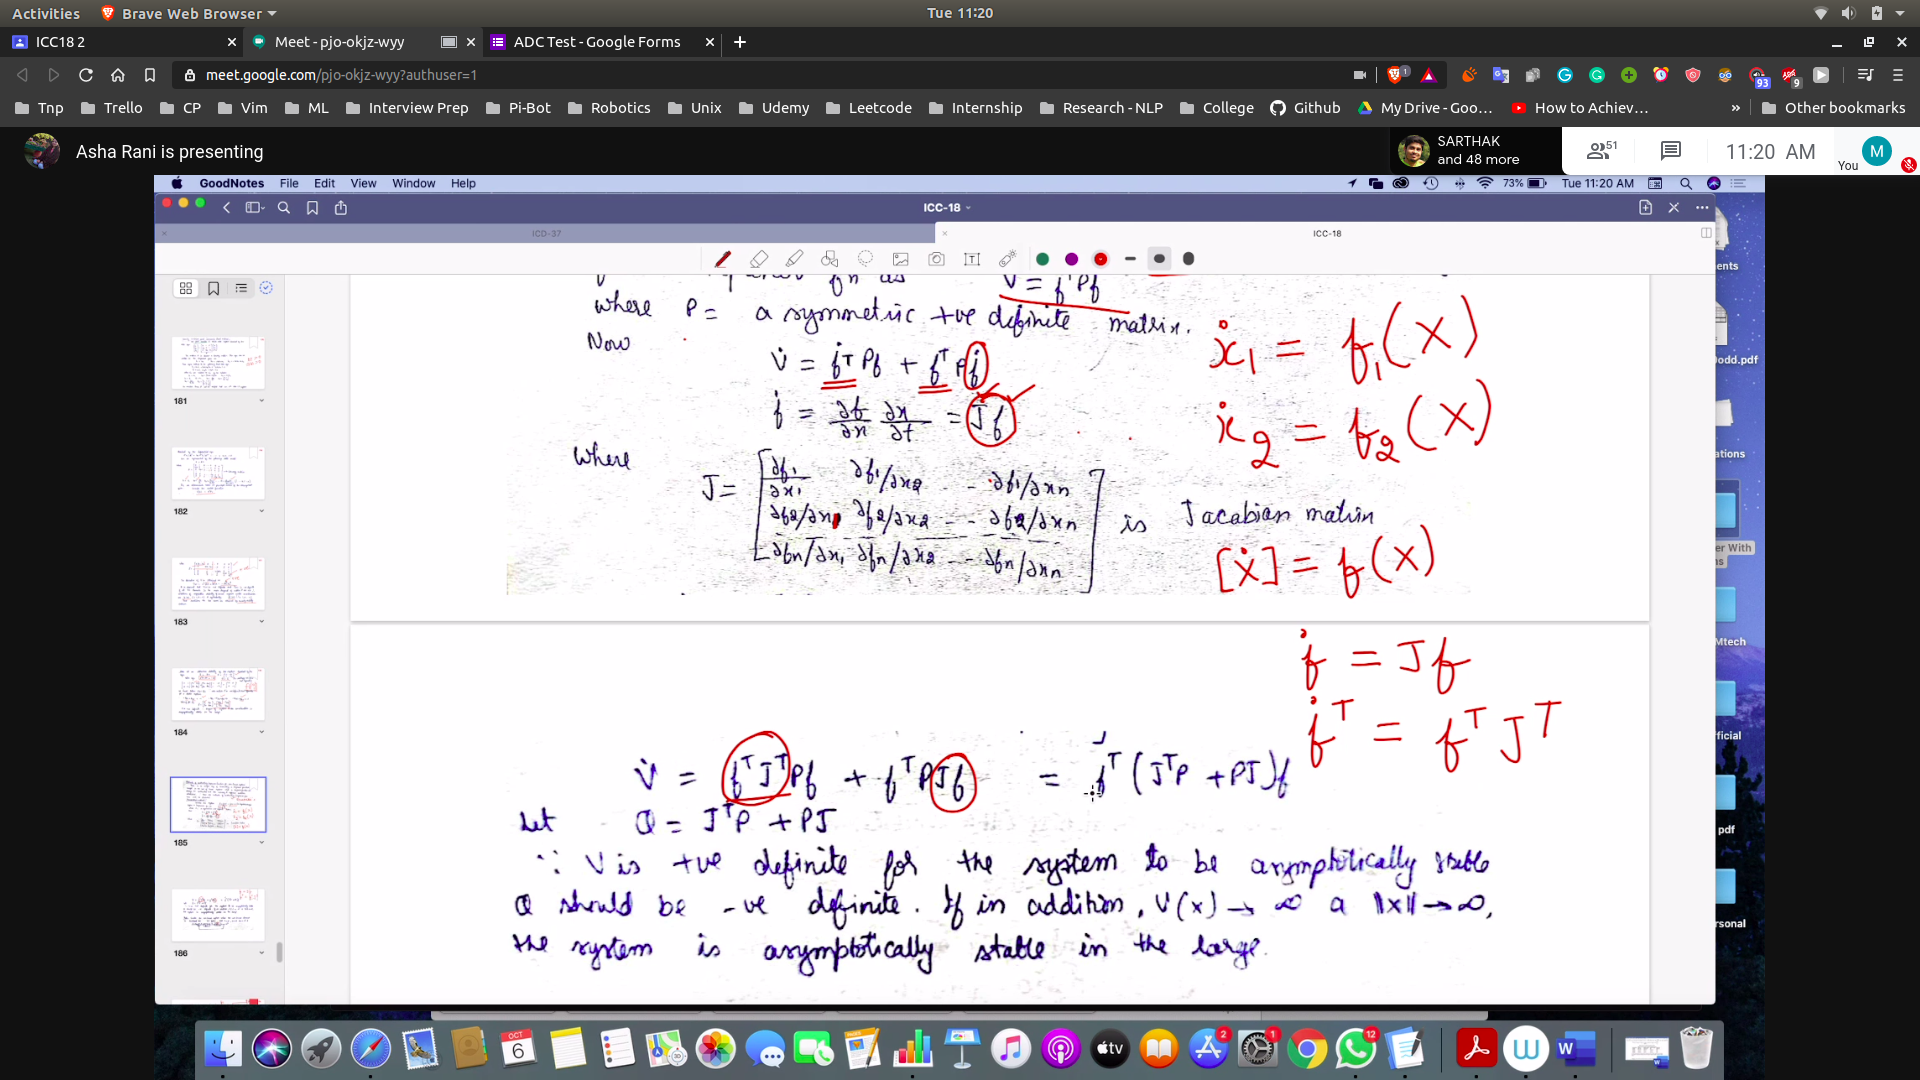 Activities Brave Web Browser Tue 11:20
ICC18 2 Meet - pjo-okjz-wyy ADC Test - Google Forms
meet.google.com/pjo-okjz-wyy?authuser=1
Tnp Trello CP Vim ML Interview Prep Pi-Bot Robotics Unix Udemy Leetcode Internship Research - NLP College Github My Drive - Goo... How to Achiev... » Other bookmarks
Asha Rani is presenting
SARTHAK
and 48 more
51
11:20 AM
You M
GoodNotes File Edit View Window Help 73% Tue 11:20 AM
ICC-18
ICD-37 ICC-18
V = fᵀPf
where P = a symmetric +ve definite matrix.
Now
V̇ = ḟᵀPf + fᵀPḟ
ḟ = ∂f/∂x ∂x/∂t = Jf
where
J = [∂f1/∂x1 ∂f1/∂x2 -- ∂f1/∂xn
∂f2/∂x1 ∂f2/∂x2 -- ∂f2/∂xn
∂fn/∂x1 ∂fn/∂x2 -- ∂fn/∂xn] is Jacabian matrix
ẋ1 = f1(X)
ẋ2 = f2(X)
[Ẋ] = f(X)
ḟ = Jf
ḟᵀ = fᵀJᵀ
V̇ = fᵀJᵀPf + fᵀPJf = fᵀ(JᵀP + PJ)f
Let Q = JᵀP + PJ
∵ V is +ve definite for the system to be asymptotically stable
Q should be -ve definite. If in addition, V(x) → ∞ a ||x|| → ∞,
the system is asymptotically stable in the large.
181
182
183
184
185
186
ents
Dodd.pdf
ations
er With
ns
Mtech
official
pdf
rsonal
OCT
6
tv
2
1
12
W